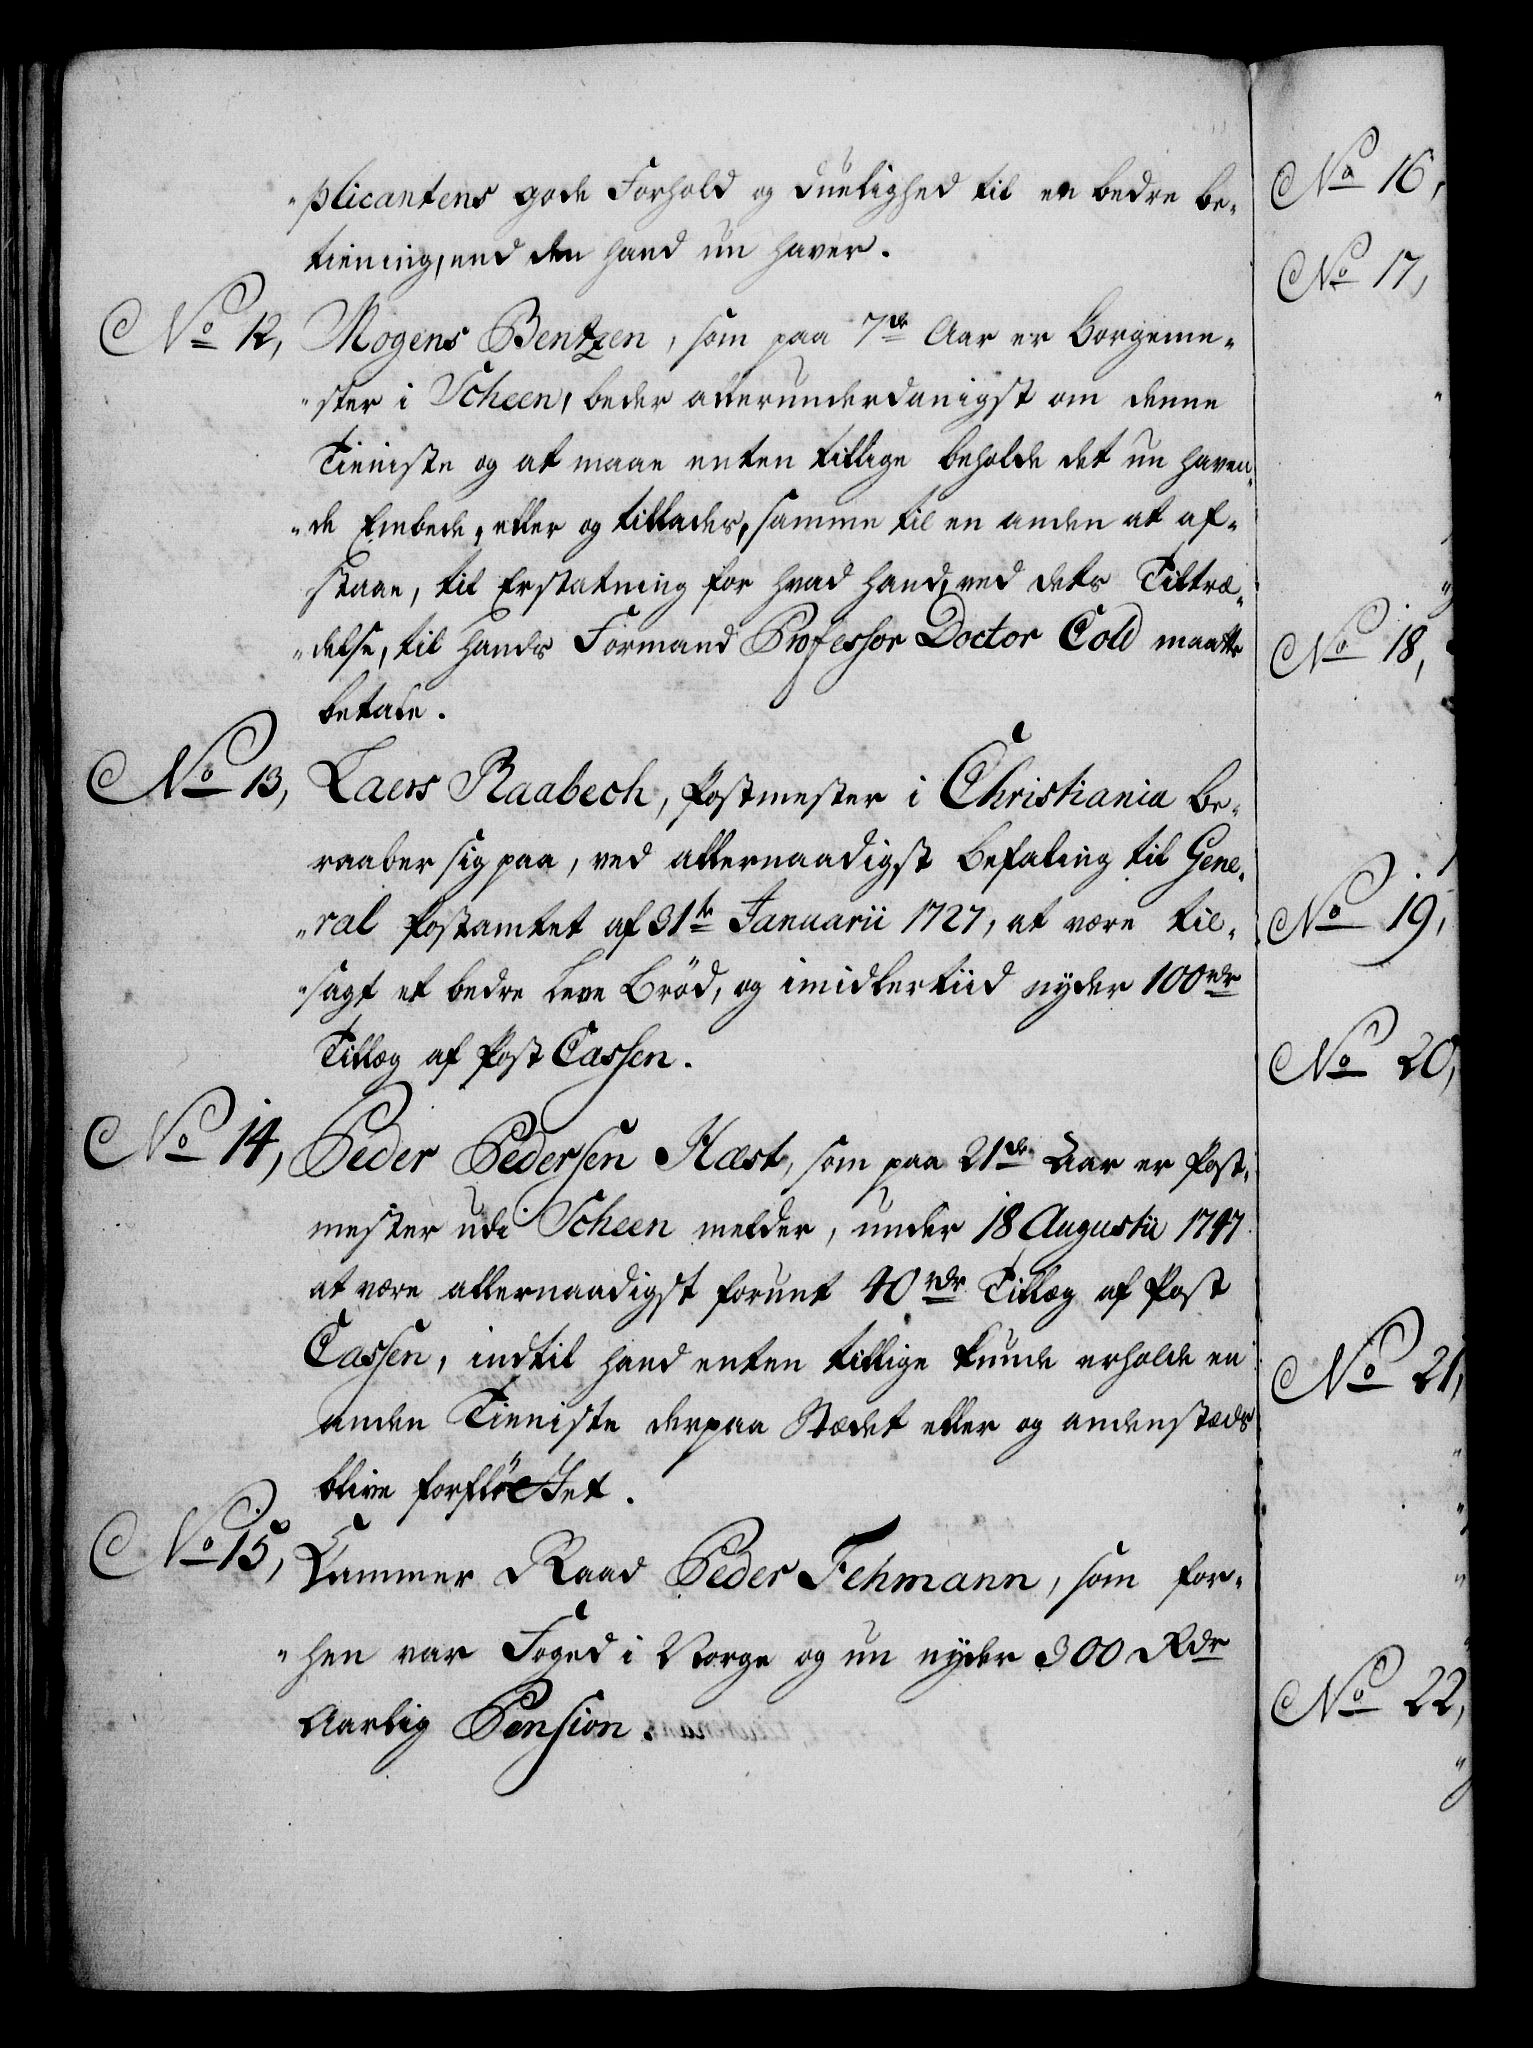 plicantens gode Forhold og duelighed til en bedre be-
tiening, end den hand nu haver.
No 12, Mogens Bentzen, som paa 7de Aar er Borgeme-
ster i Scheen, beder allerunderdanigst om denne
Tieniste og at maae enten tillige beholde det nu haven-
de Embede, eller og tillades, samme til en anden at af-
staae, til Erstatning for hvad hand, ved dets Tiltræ-
delse, til hands Formand Professor Doctor Cold maatte
betale.
No 13, Laers Raabech, Postmester i Christiania be-
raaber sig paa, ved allernaadigst Befaling til Gene-
ral Postamtet af 31te Januarii 1727, at være til-
sagt et bedre Leve Brød, og imidlertiid nyder 100 rdr
Tillæg af Post Cassen.
No 14, Peder Pedersen Hæst, som paa 21de Aar er Post-
mester udi Scheen melder, under 18 Augustii 1747
at være allernaadigst forunt 40 rdr Tillæg af Post
Cassen, indtil hand enten tillige kunde erholde en
anden Tieniste derpaa Stædet eller og andenstæds
blive forfløttet.
No 15, Cammer Raad Peder Fehmann, som for-
hen var Foged i Norge og nu nyder 300 Rdr
Aarlig Pension.
No 16,
No 17,
No 18,
No 19,
No 20,
No 21,
No 22,